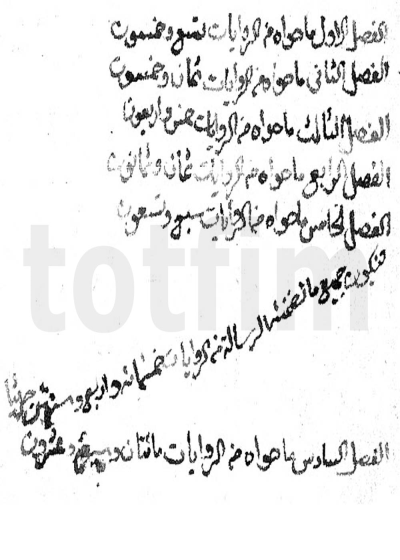 الفصل الاول ما حواه من الروايات تسع وخمسون
الفصل الثاني ما حواه من الروايات ثمان وخمسون
الفصل الثالث ما حواه من الروايات خمس واربعون
الفصل الرابع ما حواه من الروايات ثمان وثمانون
الفصل الخامس ما حواه من الروايات سبع وتسعون
فيكون جميع ما تضمنته الرسالة من الروايات خمسمائة واربع وستين حديثا
الفصل السادس ما حواه من الروايات مائتان وسبع وعشرون
totfim